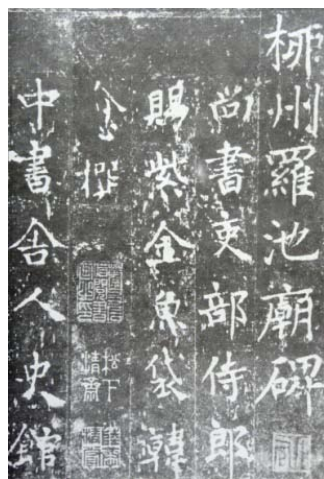 柳州羅池廟碑
尚書吏部侍郎
賜紫金魚袋韓
愈撰
松下
清齋
中書舍人史館